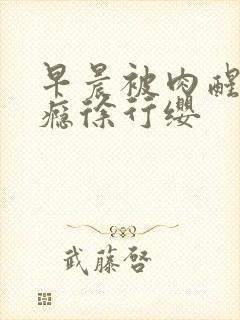 早晨被肉醒
瘾徐行缨
武藤啓